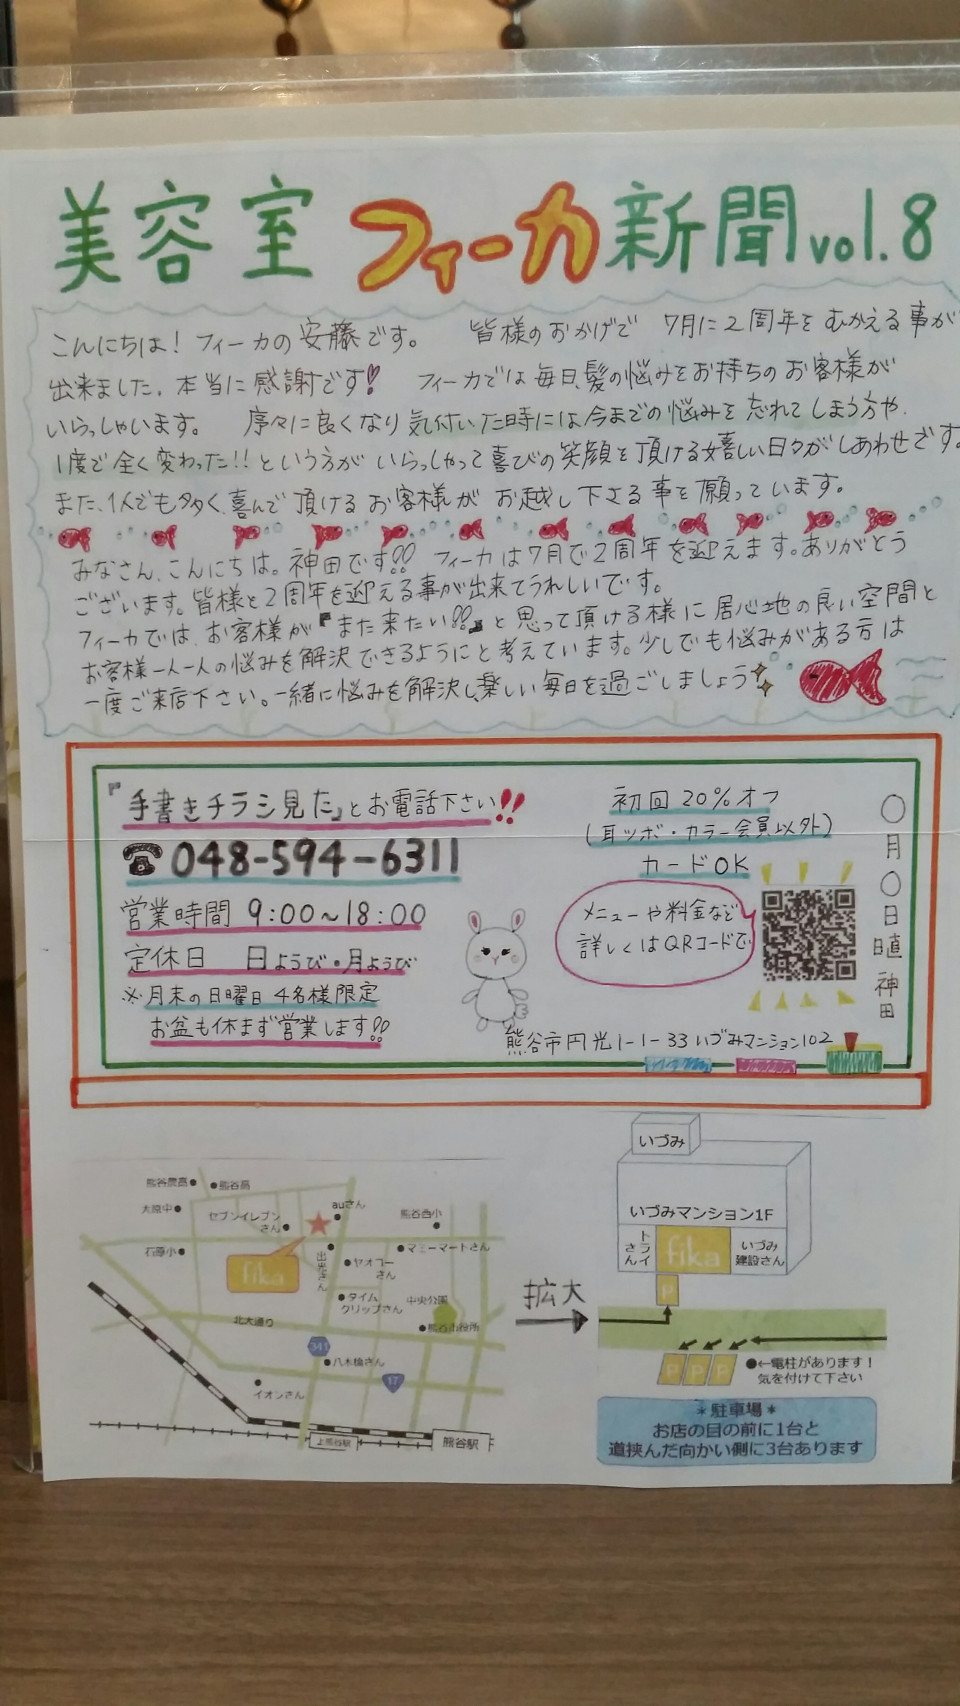 美容室 フィーカ新聞 vol.8
こんにちは! フィーカの安藤です。 皆様のおかげで 7月に2周年をむかえる事が
出来ました。本当に感謝です! フィーカでは毎日、髪の悩みをお持ちのお客様が
いらっしゃいます。 序々に良くなり気付いた時には今までの悩みを忘れてしまう方や、
1度で全く変わった!!という方がいらっしゃって喜びの笑顔を頂ける嬉しい日々がしあわせです。
また、1人でも多く、喜んで頂けるお客様が お越し下さる事を願っています。
みなさん、こんにちは。神田です!! フィーカは7月で2周年を迎えます。ありがとう
ございます。皆様と2周年を迎える事が出来てうれしいです。
フィーカでは、お客様が『また来たい!!』と思って頂ける様に居心地の良い空間と
お客様一人一人の悩みを解決できるようにと考えています。少しでも悩みがある方は
一度ご来店下さい。一緒に悩みを解決し、楽しい毎日を過ごしましょう
『手書きチラシ見た』とお電話下さい!!
☎048-594-6311
営業時間 9:00~18:00
定休日 日ようび・月ようび
※月末の日曜日4名様限定
お盆も休まず営業します!!
初回20%オフ
(耳ツボ・カラー会員以外)
カードOK
メニューや料金など
詳しくはQRコードで
○月○日 日直 神田
熊谷市円光1-1-33いづみマンション102
熊谷農高
熊谷高
大原中
セブンイレブンさん
auさん
熊谷西小
石原小
fika
出光さん
マミーマートさん
ヤオコーさん
タイムクリップさん
中央公園
北大通り
熊谷市役所
341
八木橋さん
17
イオンさん
上熊谷駅
熊谷駅
拡大
いづみ
いづみマンション1F
トライさん
fika
いづみ建設さん
P
P P P
●←電柱があります!
気を付けて下さい
*駐車場*
お店の目の前に1台と
道挟んだ向かい側に3台あります